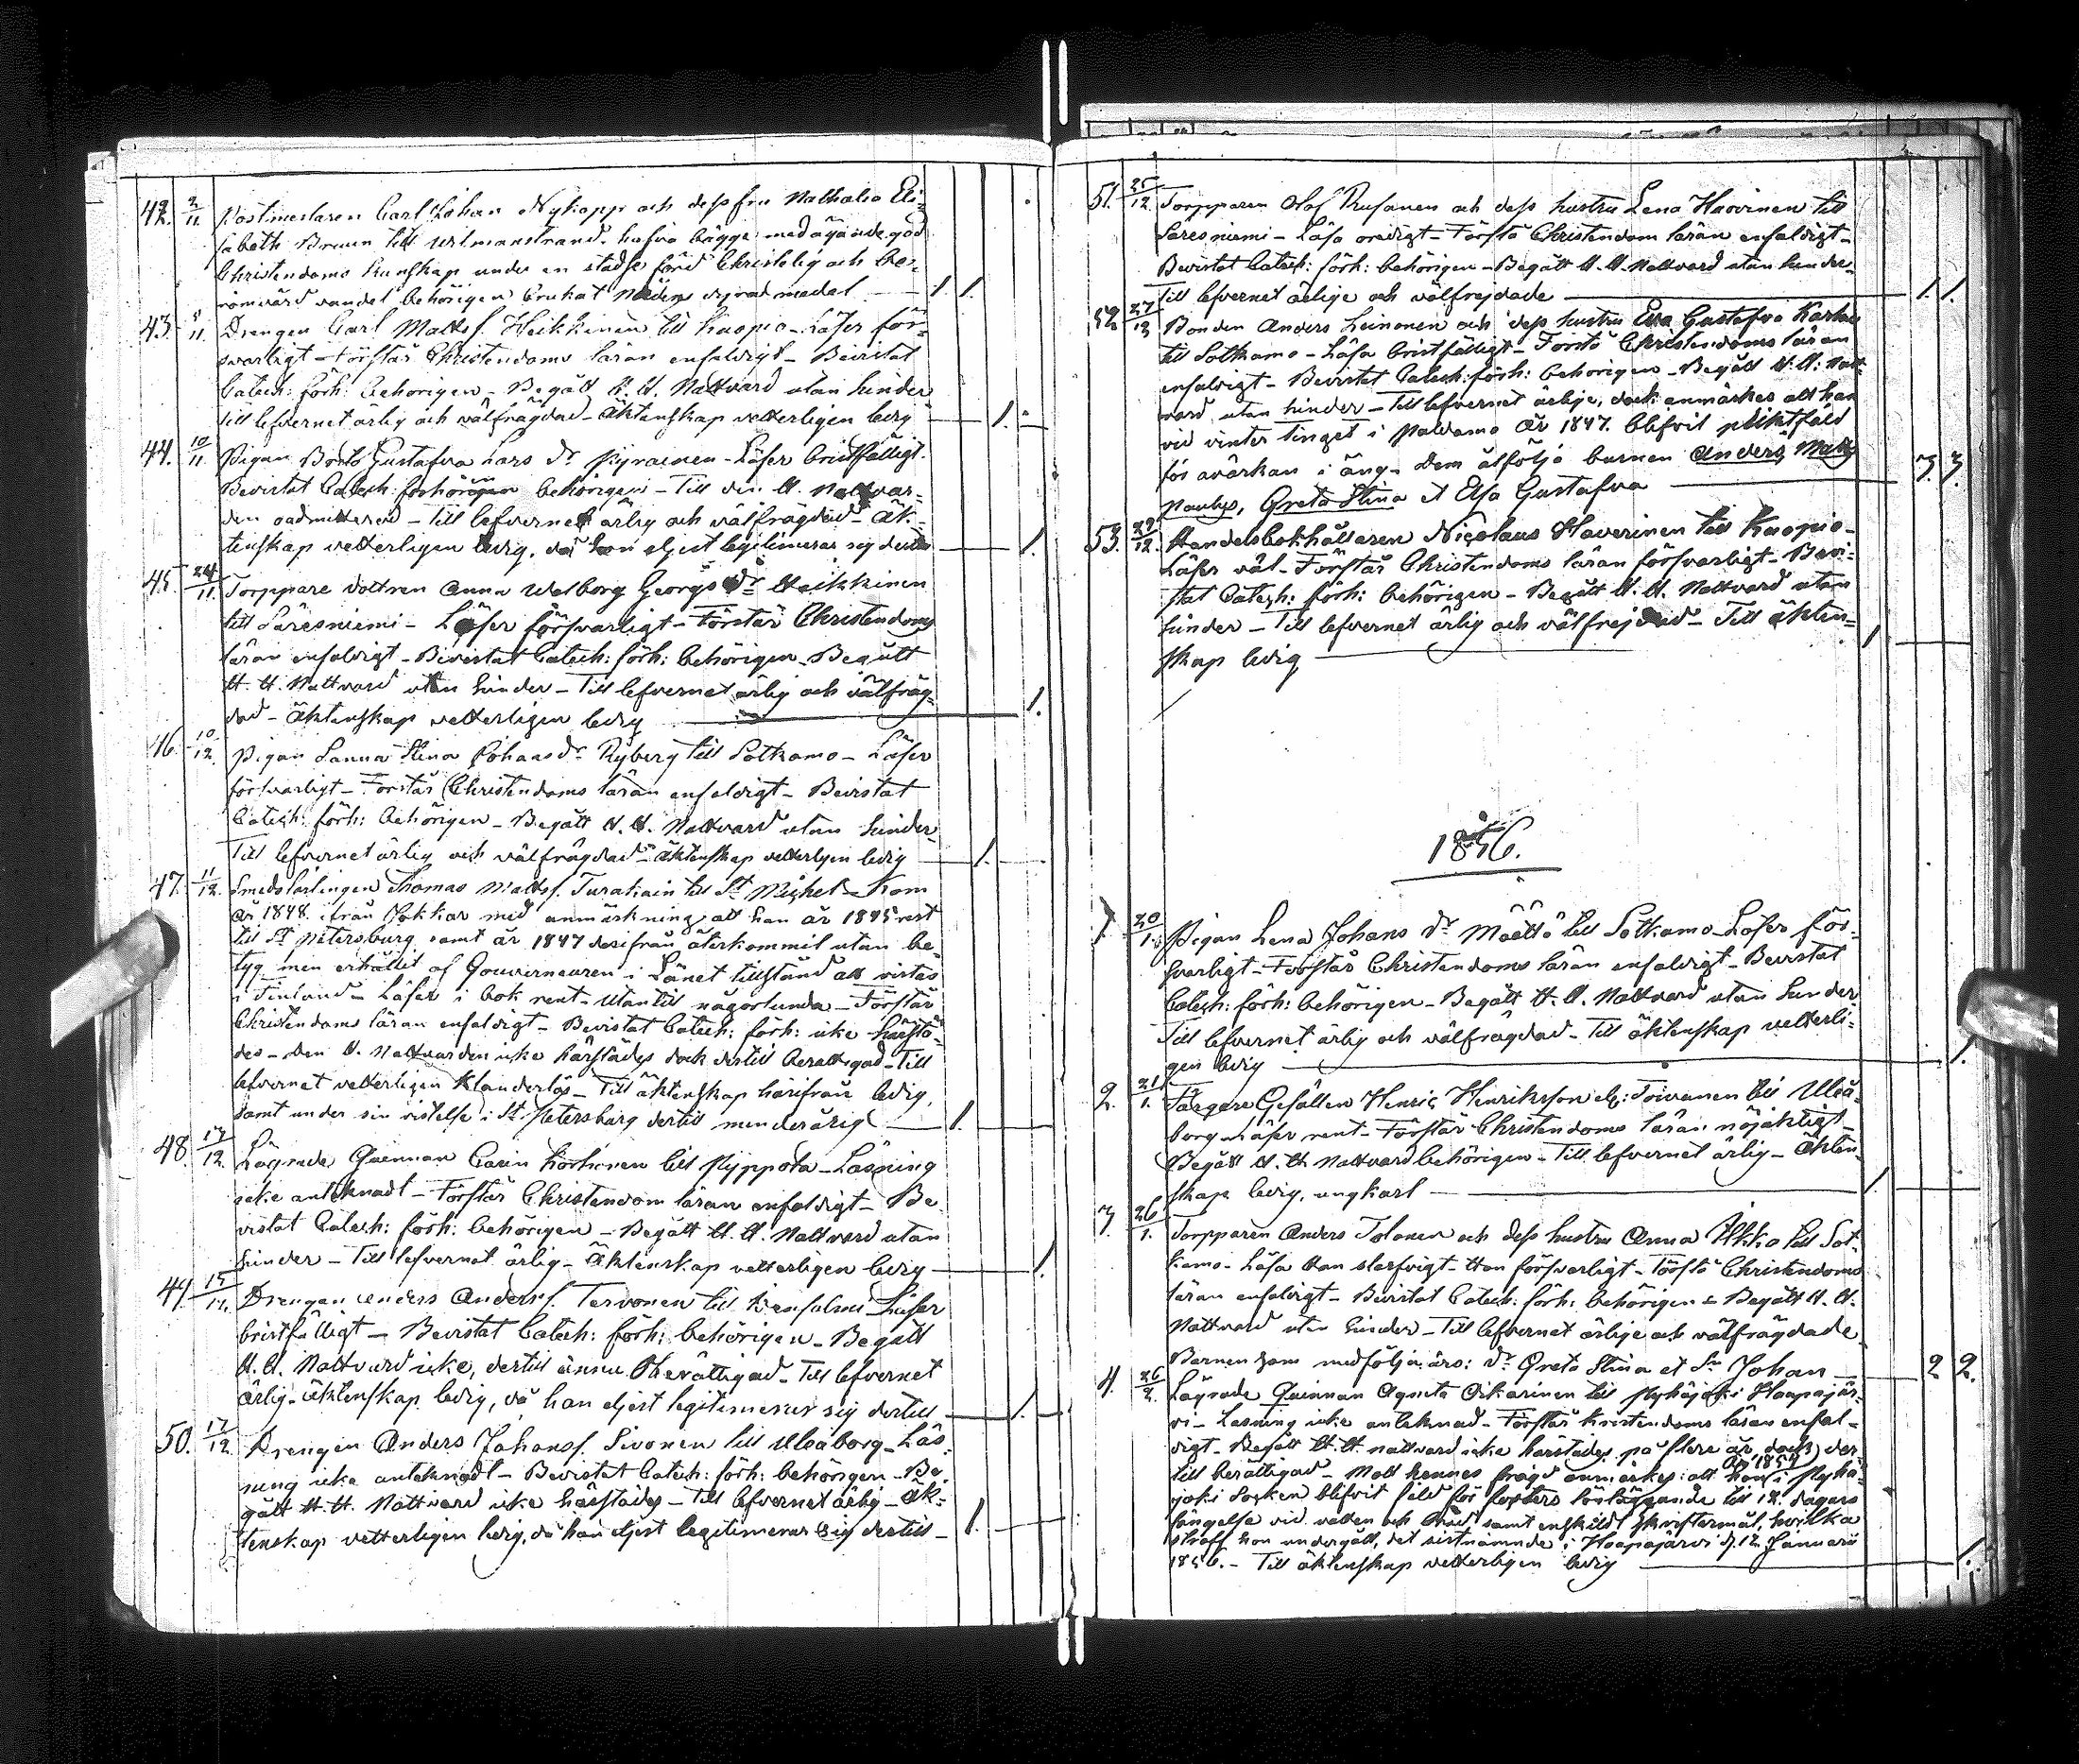 42. 2/11 Postmestaren Carl Johan Nykopp och dess fru Nathalia Eli-
sabeth Bruun till Wilmanstrand. hafva bägge medägande god
Christendoms kunskap under en städse förd Christelig och be-
römvärd vandel behörigen brukat Nådens dyra medel — 1. 1.
43. 8/11 Drengen Carl Matts s. Heikkinen till Kuopio – Läser för-
svarligt – Förstår Christendoms läran enfaldigt – Bevistat
Catech: förh: behörigen – Begått H. H. Nattvard utan hinder
till lefvernet ärlig och välfrägdad – Äktenskap vetterligen ledig — 1.
44. 10/11 Pigan Brita Gustafva Lars dr Pyrainen – Läser bristfälligt.
Bevistat Catech: förhören behörigen – Till den H. Nattvar-
den oadmitterad – Till lefvernet ärlig och välfrägdad – Äk-
tenskap vetterligen ledig, då hon eljest legitimerar sig dertill — 1.
45. 24/11 Torppare dottren Anna Walborg Georgs dr Heikkinen
till Säresniemi – Läser försvarligt – Förstår Christendoms
läran enfaldigt – Bevistat Catech: förh: behörigen – Begått
H. H. Nattvard utan hinder – Till lefvernet ärlig och välfräg-
dad – Äktenskap vetterligen ledig — 1.
46. 10/12 Pigan Sanna Stina Johans dr Ryberg till Sotkamo – Läser
försvarligt – Förstår Christendoms läran enfaldigt – Bevistat
Catech: förh: behörigen – Begått H. H. Nattvard utan hinder
Till lefvernet ärlig och välfrägdad – Äktenskap vetterligen ledig — 1.
47. 11/12 Smedslärlingen Thomas Matts s. Turakain till St Michel – Kom
år 1848 ifrån Jokkas med anmärkning, att han år 1845 rest
till St Petersburg, samt år 1847 derifrån återkommit utan be-
tyg men erhållit af Gouverneuren i Länet tillstånd att vistas
i Finland – Läser i bok rent – Utantill någorlunda – Förstår
Christendoms läran enfaldigt – Bevistat Catech: förh: icke härstä-
des – Den H. Nattvarden icke härstädes dock dertill berättigad – Till
lefvernet vetterligen klanderlös – Till äktenskap härifrån ledig,
samt under sin vistelse i St Petersburg dertill minderårig — 1.
48. 13/12 Lägrade Qvinnan Carin Korhonen till Pyppola – Läsning
icke anteknadt – Förstår Christendom läran enfaldigt – Be-
vistat Catech: förh: behörigen – Begått H. H. Nattvard utan
hinder – Till lefvernet ärlig – Äktenskap vetterligen ledig — 1.
49. 15/12. Drengen Anders Anders s. Tervonen till Idensalmi Läser
bristfälligt – Bevistat Catech: förh: behörigen – Begått
H. H. Nattvard icke, dertill ännu Oberättigad – Till lefvernet
ärlig – Äktenskap ledig, då han eljest legitimerar sig dertill — 1.
50. 17/12 Drengen Anders Johans s. Sivonen till Uleåborg – Läs-
ning icke anteknadt – Bevistat Catech: förh: behörigen – Be-
gått H. H. Nattvard icke härstädes – Till lefvernet ärlig – Äk-
tenskap vetterligen ledig, då han eljest legitimerar sig dertill — 1.
51. 25/12 Torpparen Olof Rusanen och dess hustru Lena Haverinen till
Säresniemi – Läsa oredigt – Förstå Christendom läran enfaldigt –
Bevistat Catech: förh: behörigen – Begått H. H. Nattvard utan hinder
Till lefvernet ärlige och välfrejdade — 1. 1.
52. 27/12 Bonden Anders Leinonen och dess hustru Eva Gustafva Karhu
till Sotkamo – Läsa bristfälligt – Förstå Christendoms läran
enfaldigt – Bevistat Catech: förh: behörigen – Begått H. H: Natt-
vard utan hinder – Till lefvernet ärlige, dock anmärkes att han
vid vinter tinget i Paldamo år 1847. blifvit pliktfäld
för avärkan i äng – Dem åtfölja barnen Anders, Matts
Paulus, Greta Stina et Elsa Gustafva — 3. 3.
53. 29/12. Handelsbokhållaren Nicolaus Haverinen till Kuopio –
Läser väl – Förstår Christendoms läran försvarligt – Bevi-
stat Catech: förh: behörigen – Begått H. H. Nattvard utan
hinder – Till lefvernet ärlig och välfrejdad – Till äkten-
skap ledig — 1.
1856.
1. 20/1. Pigan Lena Johans dr Määttä till Sotkamo – Läser för-
svarligt – Förstår Christendoms läran enfaldigt – Bevistat
Catech: förh: behörigen – Begått H. H. Nattvard utan hinder
Till lefvernet ärlig och välfrägdad – Till äktenskap vetterli-
gen ledig — 1.
2. 21/1. Färgare Gesällen Henric Henriksson el: Toivanen till Uleå-
borg – Läser rent – Förstår Christendoms läran nöjaktigt –
Begått H. H. Nattvard behörigen – Till lefvernet ärlig – Äkten-
skap ledig, ungkarl — 1.
3. 26/1. Torpparen Anders Tolonen och dess hustru Anna Ukko till Sot-
kamo – Läsa Han slarfvigt – Hon försvarligt – Förstå Christendoms
läran enfaldigt – Bevistat Catech: förh: behörigen – Begått H. H.
Nattvard utan hinder – Till lefvernet ärlige och välfrägdade
Barnen som medfölja äro: dr Greta Stina et Sn Johan — 2 2.
4. 26/2. Lägrade Qvinnan Agneta Oikarinen till Pyhäjoki Haapajär-
vi – Läsning icke anteknad – Förstår kristendoms läran enfal-
digt – Begått H. H. nattvard icke härstädes på flere år, dock der-
till berättigad – Mott hennes frägd anmärkes: att hon år 1854 i Pyhä-
joki Socken blifvit fäld för fosters förläggande till 12. dagars
fängelse vid vatten och bröd samt enskildt skriftermål, hvilka
straff hon undergått, det sistnämnde i Haapajärvi d. 12 Januarii
1856. – Till äktenskap vetterligen ledig — 1.